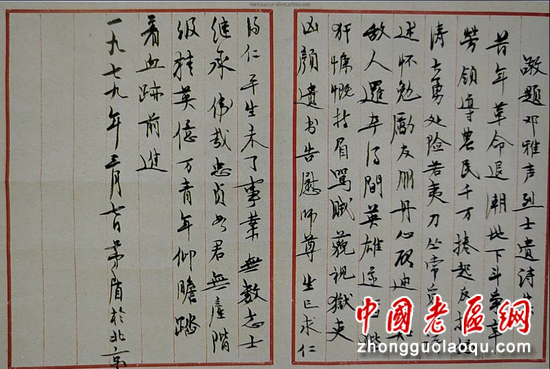 敬题邓雅声烈士遗诗
昔年革命退潮地下斗争辛
劳领导农民千万掀起反抗
涛大勇处险若夷刀丛常
述怀勉励友朋丹心硕
敌人罗 得间英雄
犴慷慨扬眉骂贼藐视狱吏
凶颜遗书告慰师尊生已求仁
得仁平生未了事业无数志士
继承伟哉忠贞如君无产阶
级精英亿万青年仰瞻踏
着血迹前进
一九七九年三月七日茅盾于北京
中国老区网
zhongguolaoqu.com